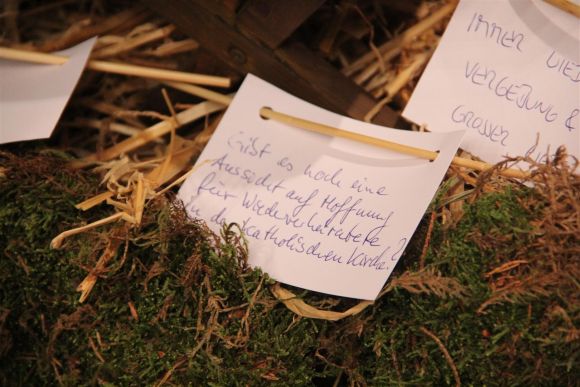 Gibt es noch eine
Aussicht auf Hoffnung
für Wiederverheiratete
in der katholischen Kirche?
IMMER
VERGEBUNG &
GROSSER